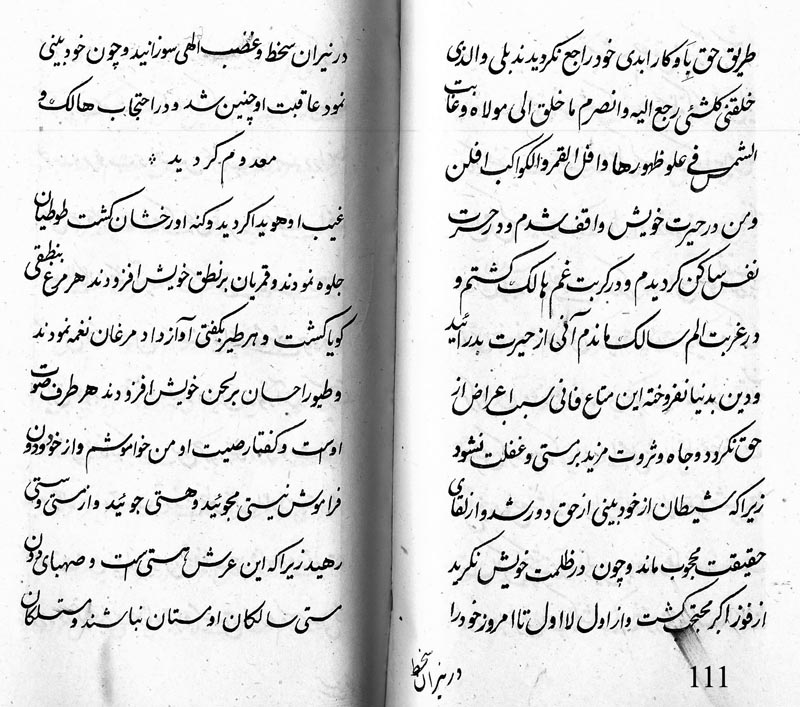 طریق حق پاوکار ابدی خود راجع نگردیدند بلی والذی
خلقنی کلشئی رجع الیه وانصرم ما خلق الی مولاه وغابت
الشمس فی علو ظهورها وافل القمر والکواکب افلن
ومن در حیرت خویش واقف شدم ودر حسرت
نفس ساکن گردیدم و در کربت غم هالک گشتم و
در غربت الم سالک ماندم آنی از حیرت بدر آئید
ودین بدنیا نفروخته این متاع فانی سبب اعراض از
حق نکردد وجاه وثروت مزید برستی وغفلت نشود
زیرا که شیطان از خود بینی از حق دور شد واز لقای
حقیقت محجوب ماند و چون در ظلمت خویش نکرید
از فوز اکبر محتجب گشت واز اول لا اول تا امروز خود را
در نیران سخط
111
در نیران سخط وغضب الهی سوزانید وچون خود بینی
نمود عاقبت او چنین شد ودر احتجاب هالک و
معدوم گردید
غیب او هویدا کردید وکنه او رخشان کشت طوطیان
جلوه نمودند وقمریان بر نطق خویش افزودند هر مرغی بنطقی
کویا کشت وهر طیر بکفتی آواز داد مرغان نغمه نمودند
وطیور احسان بر لحن خویش افزودند هر طرف صوت
اوست وکفتار صیت او من خواموشم واز خود ودون
فراموش نیستی مجوئید وهستی جوئید واز مستی وسستی
رهید زیرا که این عرش هستی است وصهبای دون
مستی سالکان اوستان نباشند ومستلکان